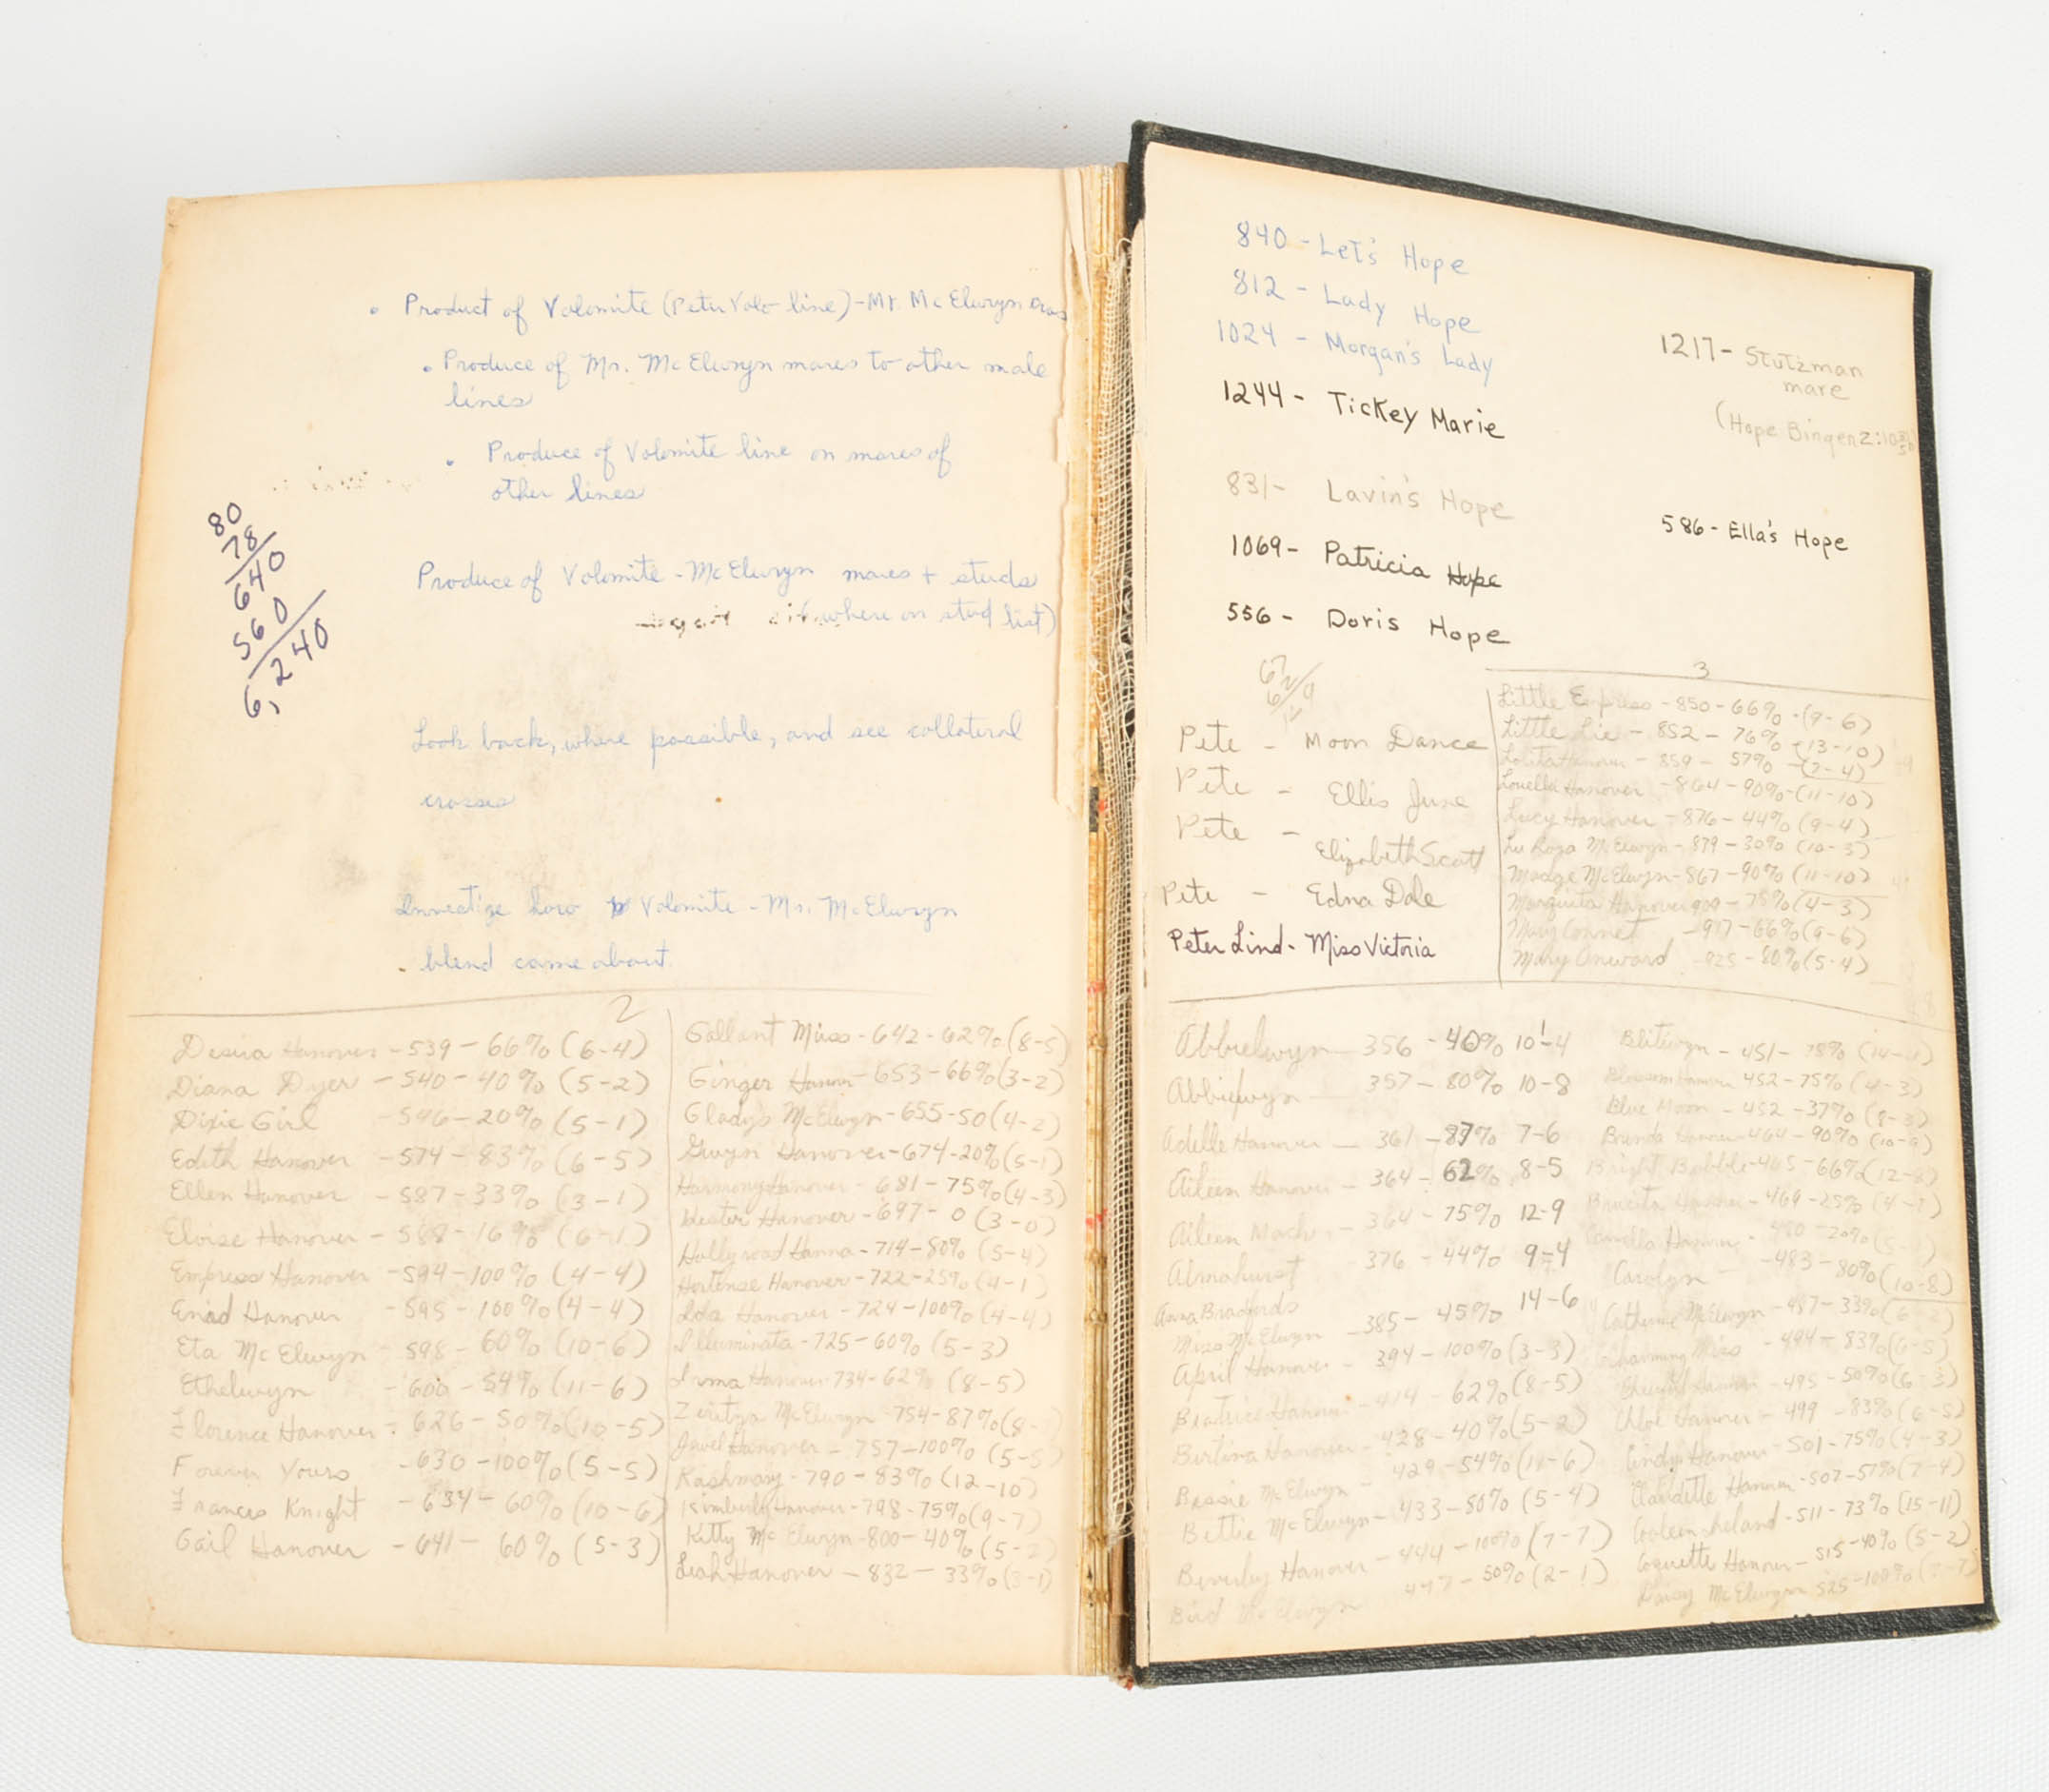 Product of Volomite (Peter Volo line) - Mr. McElwyn cross
Produce of Mr. McElwyn mares to other male
lines
Produce of Volomite line on mares of
other lines
80
78
640
560
6,240
Produce of Volomite - McElwyn mares + studs
where on stud list)
Look back, where possible, and see collateral
crosses
Investize how Volomite - Mr. McElwyn
blend came about.
2
Desira Hanover - 539 - 66% (6-4)
Diana Dyer - 540 - 40% (5-2)
Dixie Girl - 546 - 20% (5-1)
Edith Hanover - 574 - 83% (6-5)
Ellen Hanover - 587 - 33% (3-1)
Eloise Hanover - 588 - 16% (6-1)
Empress Hanover - 594 - 100% (4-4)
Enid Hanover - 595 - 100% (4-4)
Eta McElwyn - 598 - 60% (10-6)
Ethelwyn - 600 - 54% (11-6)
Florence Hanover - 626 - 50% (10-5)
Forever Yours - 630 - 100% (5-5)
Frances Knight - 634 - 60% (10-6)
Gail Hanover - 641 - 60% (5-3)
Gallant Miss - 642 - 62% (8-5)
Ginger Hanover - 653 - 66% (3-2)
Gladys McElwyn - 655 - 50 (4-2)
Gwyn Hanover - 674 - 20% (5-1)
Harmony Hanover - 681 - 75% (4-3)
Hester Hanover - 697 - 0 (3-0)
Hollyrood Hanna - 714 - 80% (5-4)
Hortense Hanover - 722 - 25% (4-1)
Ida Hanover - 724 - 100% (4-4)
Illuminata - 725 - 60% (5-3)
Irma Hanover 734 - 62% (8-5)
McElwyn - 754 - 87% (8-
Jewel Hanover - 757 - 100% (5-5
Kashmary - 790 - 83% (12-10)
Kimberly Hanover - 798 - 75% (9-7)
Kitty McElwyn - 800 - 40% (5-2
Leah Hanover - 832 - 33% (3-1)
840 - Let's Hope
812 - Lady Hope
1024 - Morgan's Lady
1244 - Tickey Marie
831 - Lavin's Hope
1069 - Patricia Hope
556 - Doris Hope
1217 - Stutzman
mare
(Hope Bingen 2:10
586 - Ella's Hope
67
62
129
Pete - Moon Dance
Pete - Ellis June
Pete - Elizabeth Scott
Pete - Edna Dale
Peter Lind - Miss Victoria
3
Little Express - 850 - 66% - (9-6)
Little Lie - 852 - 76% - (13-10)
Lolita Hanover - 859 - 57% - (7-4)
Louella Hanover - 864 - 90% - (11-10)
Lucy Hanover - 876 - 44% (9-4)
Lu Rosa McElwyn - 879 - 30% (10-3)
Madge McElwyn - 867 - 90% (11-10)
Marquita Hanover 900 - 75% (4-3)
Mary Connet - 917 - 66% (9-6)
Mary Onward - 925 - 80% (5-4)
Abbielwyn - 356 - 40% 10-4
357 - 80% 10-8
Adelle Hanover - 361 - 87% 7-6
Aileen Hanover - 364 - 62% 8-5
Aileen Mach - 364 - 75% 12-9
Almahurst - 376 - 44% 9-4
Anna Bradfords
Miss McElwyn - 385 - 45% 14-6
April Hanover - 394 - 100% (3-3)
Beatrice Hanover - 414 - 62% (8-5)
Bertina Hanover - 428 - 40% (5-2)
Bessie McElwyn - 429 - 54% (11-6)
Bettie McElwyn - 433 - 80% (5-4)
Beverly Hanover - 444 - 100% (7-7)
Bird McElwyn 447 - 50% (2-1)
Blitwyn - 451 - 78% (14-11)
Blossom Hanover 452 - 75% (4-3)
Blue Moon - 452 - 37% (8-3)
Brenda Hanover - 464 - 90% (10-9)
Bright Bubble - 465 - 66% (12-8)
Hanover - 469 - 25% (4-1)
Camilla Hanover - 480 - 20% (5-1)
Carolyn - 483 - 80% (10-8)
Catherine McElwyn - 487 - 33% (6-2)
Charming Miss - 494 - 83% (6-5)
Hanover - 495 - 50% (6-3)
Chloe Hanover - 499 - 83% (6-5)
Cindy Hanover - 501 - 75% (4-3)
Claudette Hanover - 507 - 57% (7-4)
Coleen Ireland - 511 - 73% (15-11)
Coquette Hanover - 515 - 40% (5-2)
Daisy McElwyn 525 - 100% (7-7)